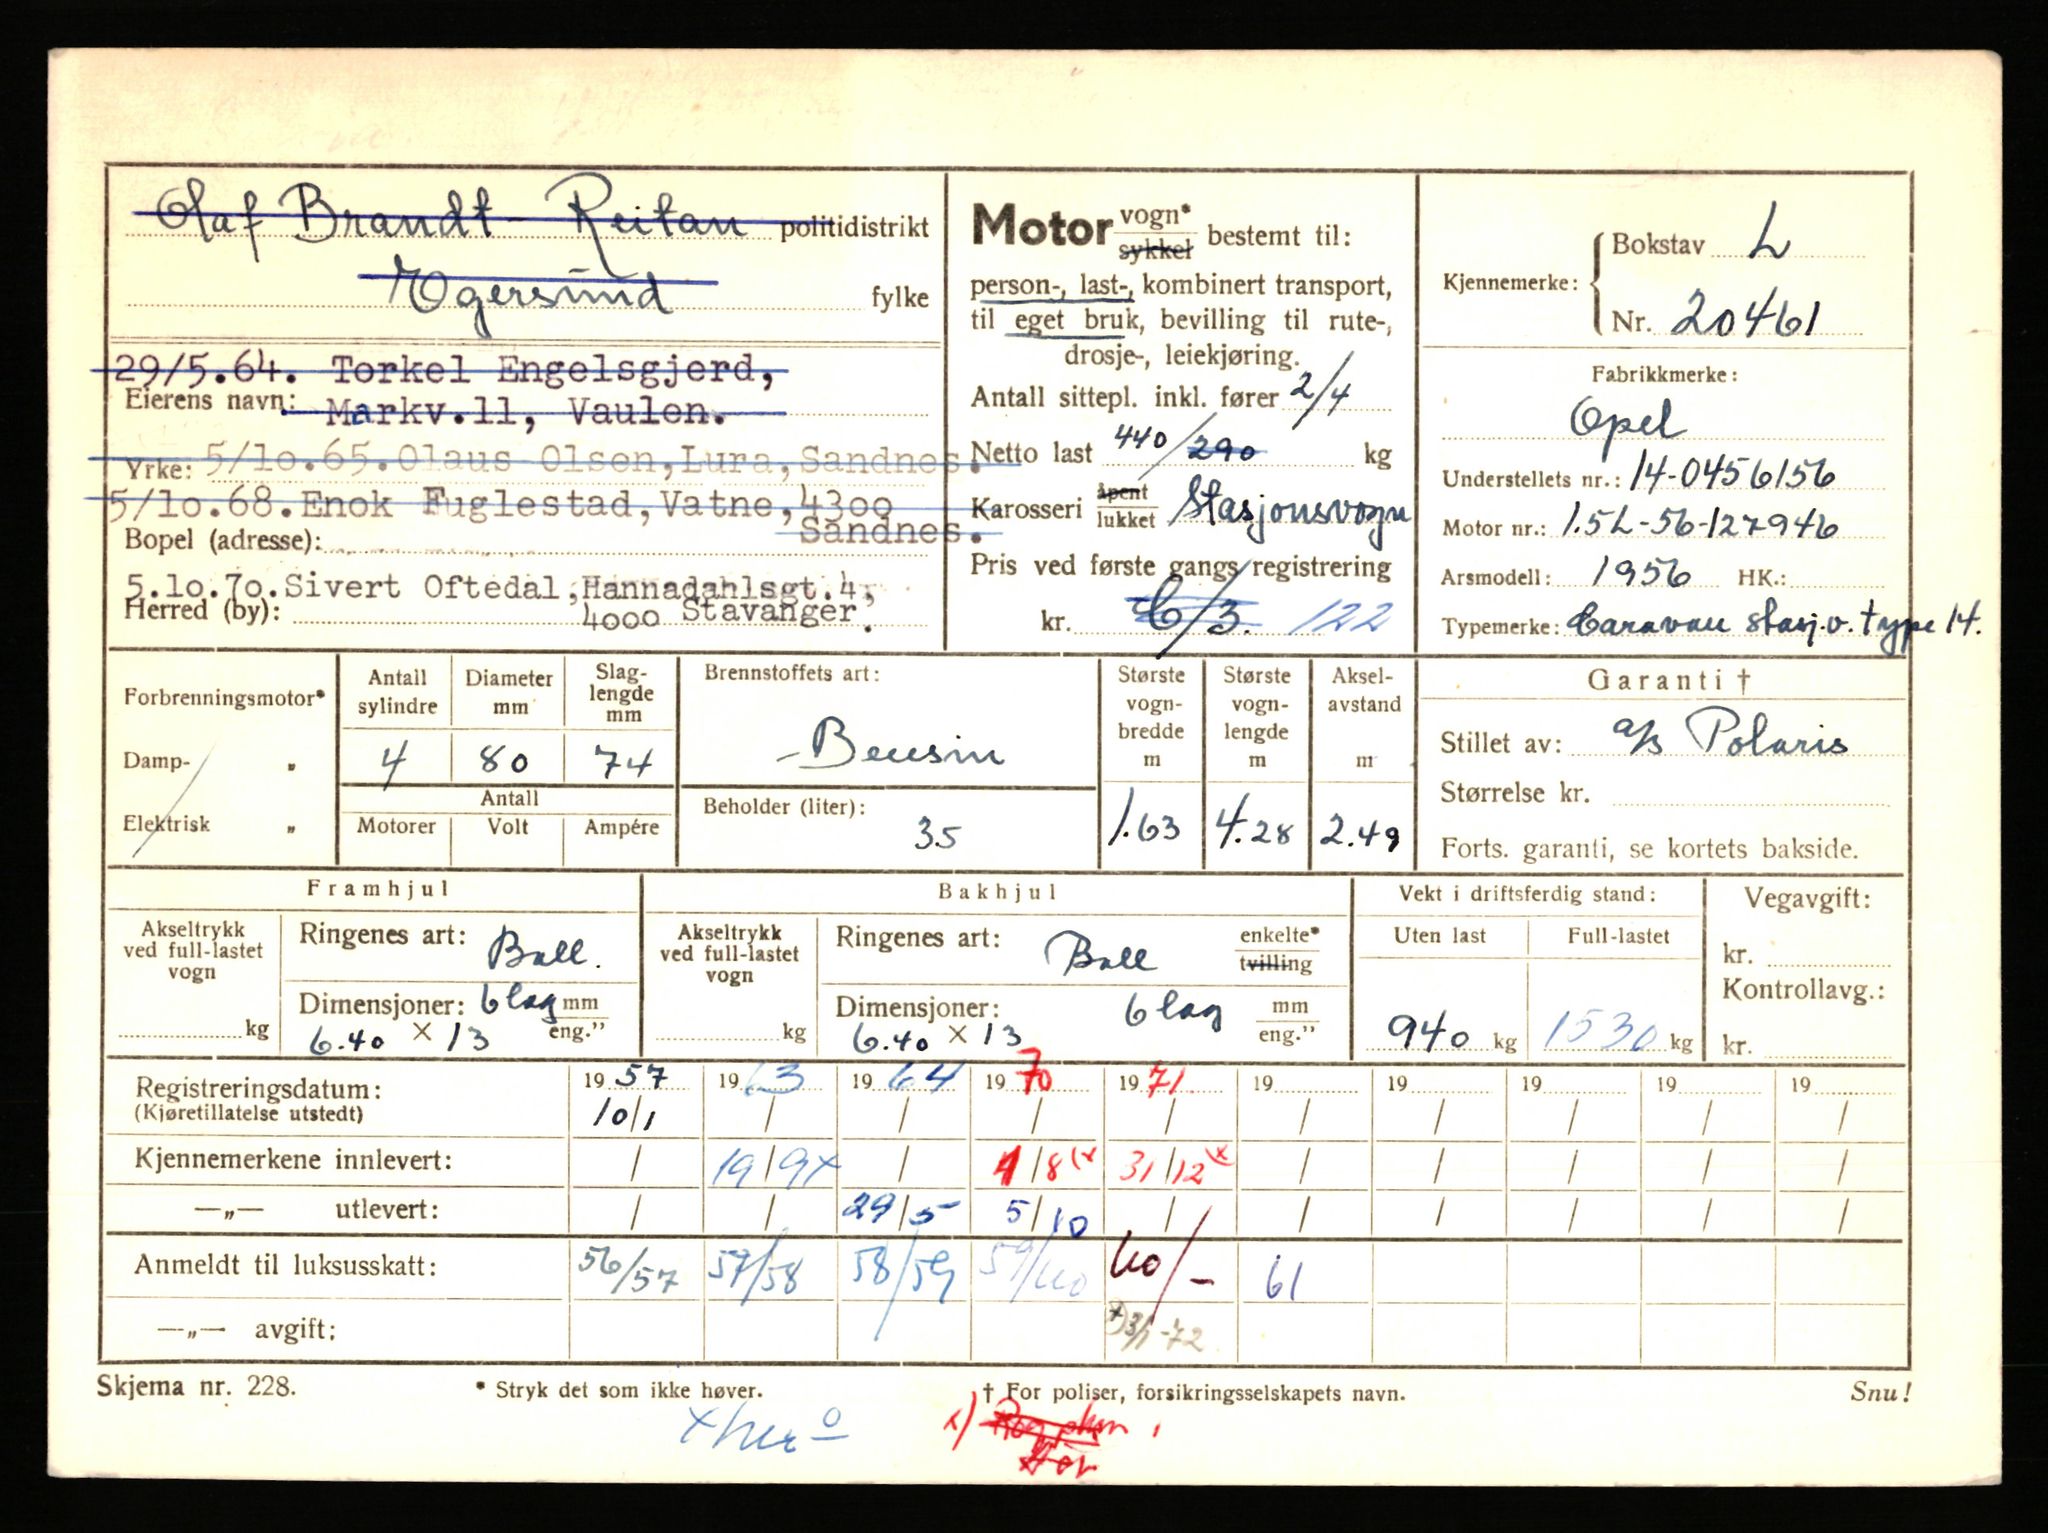 Olaf Brandt Reitan politidistrikt
Egersund fylke
29/5.64. Torkel Engelsgjerd,
Eierens navn: Markv.11, Vaulen.
Yrke: 5/10.65. Olaus Olsen, Lura, Sandnes.
5/10.68. Enok Fuglestad, Vatne, 4300
Sandnes.
Bopel (adresse):
5.10.70. Sivert Oftedal, Hannadahlsgt.4,
Herred (by): 4000 Stavanger.
Motor vogn* sykkel bestemt til:
person-, last-, kombinert transport,
til eget bruk, bevilling til rute-,
drosje-, leiekjøring.
Antall sittepl. inkl. fører 2/4
Netto last 440/290 kg
Karosseri åpent lukket Stasjonsvogn
Pris ved første gangs registrering
kr. 122
Kjennemerke: Bokstav L
Nr. 20461
Fabrikkmerke:
Opel
Understellets nr.: 14-0456156
Motor nr.: 1.5L-56-127946
Arsmodell: 1956 HK.:
Typemerke: Caravan stasj.v. type 14.
Forbrenningsmotor*
Damp- „
Elektrisk „
Antall sylindre Diameter mm Slag-lengde mm
4 80 74
Antall
Motorer Volt Ampére
Brennstoffets art:
Bensin
Beholder (liter):
35
Største vogn-bredde m Største vogn-lengde m Aksel-avstand m
1.63 4.28 2.49
Garanti †
Stillet av: a/s Polaris
Størrelse kr.
Forts. garanti, se kortets bakside.
Framhjul
Akseltrykk ved full-lastet vogn
kg
Ringenes art: Ball.
Dimensjoner: 6 lag mm
6.40 x 13 eng."
Bakhjul
Akseltrykk ved full-lastet vogn
kg
Ringenes art: Ball enkelte* tvilling
Dimensjoner: 6 lag mm
6.40 x 13 eng."
Vekt i driftsferdig stand:
Uten last Full-lastet
940 kg 1530 kg
Vegavgift:
kr.
Kontrollavg.:
kr.
Registreringsdatum: 1957 1963 1964 1970 1971 19 19 19 19 19
(Kjøretillatelse utstedt) 10/1 / / / / / / / / /
Kjennemerkene innlevert: / 19/9x / 1/8 (x 31/12 (x / / / / /
—„— utlevert: / / 29/5 5/10 / / / / / /
Anmeldt til luksusskatt: 56/57 57/58 58/59 59/60 60/- 61
—„— avgift: x) 3/1-72
Skjema nr. 228. * Stryk det som ikke høver. † For poliser, forsikringsselskapets navn. Snu!
x)